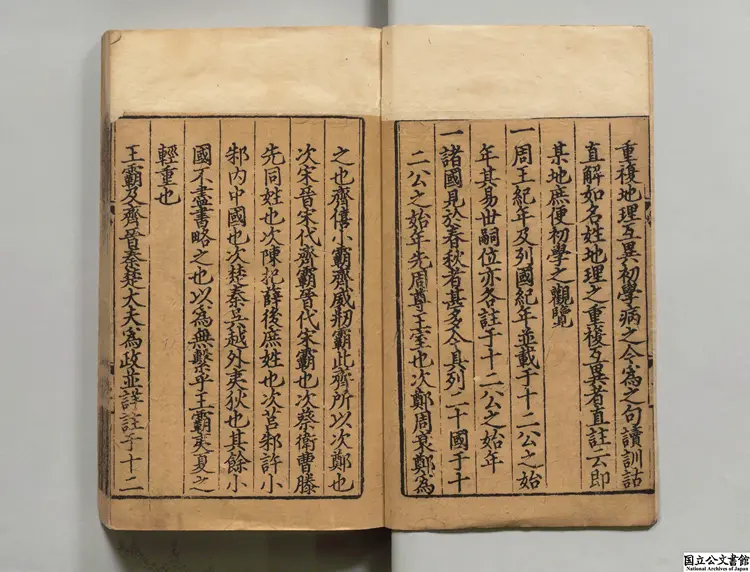 重複地理互異初學病之今為之句讀訓詁
直解如名姓地理之重複互異者直註云即
某地庶便初學之觀覽
一周王紀年及列國紀年並載于十二公之始
年其易世嗣位亦各註于十二公之始年
一諸國見於春秋者甚多今具列二十國于十
二公之始年先周尊王室也次鄭周衰鄭為
之也齊僖小霸齊威刱霸此齊所以次鄭也
次宋晉宋代齊霸晉代宋霸也次蔡衛曹滕
先同姓也次陳杞薛後庶姓也次莒邾許小
邾內中國也次楚秦吳越外夷狄也其餘小
國不盡書略之也以為無繫乎王霸夷夏之
輕重也
王霸及齊晉秦楚大夫為政並詳註于十二
国立公文書館
National Archives of Japan